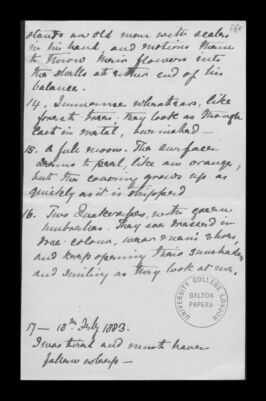 stands an old man with scales
in his hand, and motions them
to throw their flowers into
the shells at either end of his
balance.
14. Immense wheatears, like
forest trees. They look as though
cast in metal, burnished —
15. A full moon. The surface
seems to peel, like an orange,
but the covering grows up as
quickly as it is stripped
16. Two Quakeresses, with green
umbrellas. They are dressed in
drae colour, wear men's shoes,
and keep opening their sunshades
and smiling as they look at me.
UNIVERSITY COLLEGE LONDON
GALTON
PAPERS
17 — 18th July 1883.
I was tired and must have
fallen asleep —